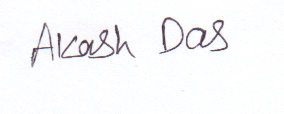 Akash Das